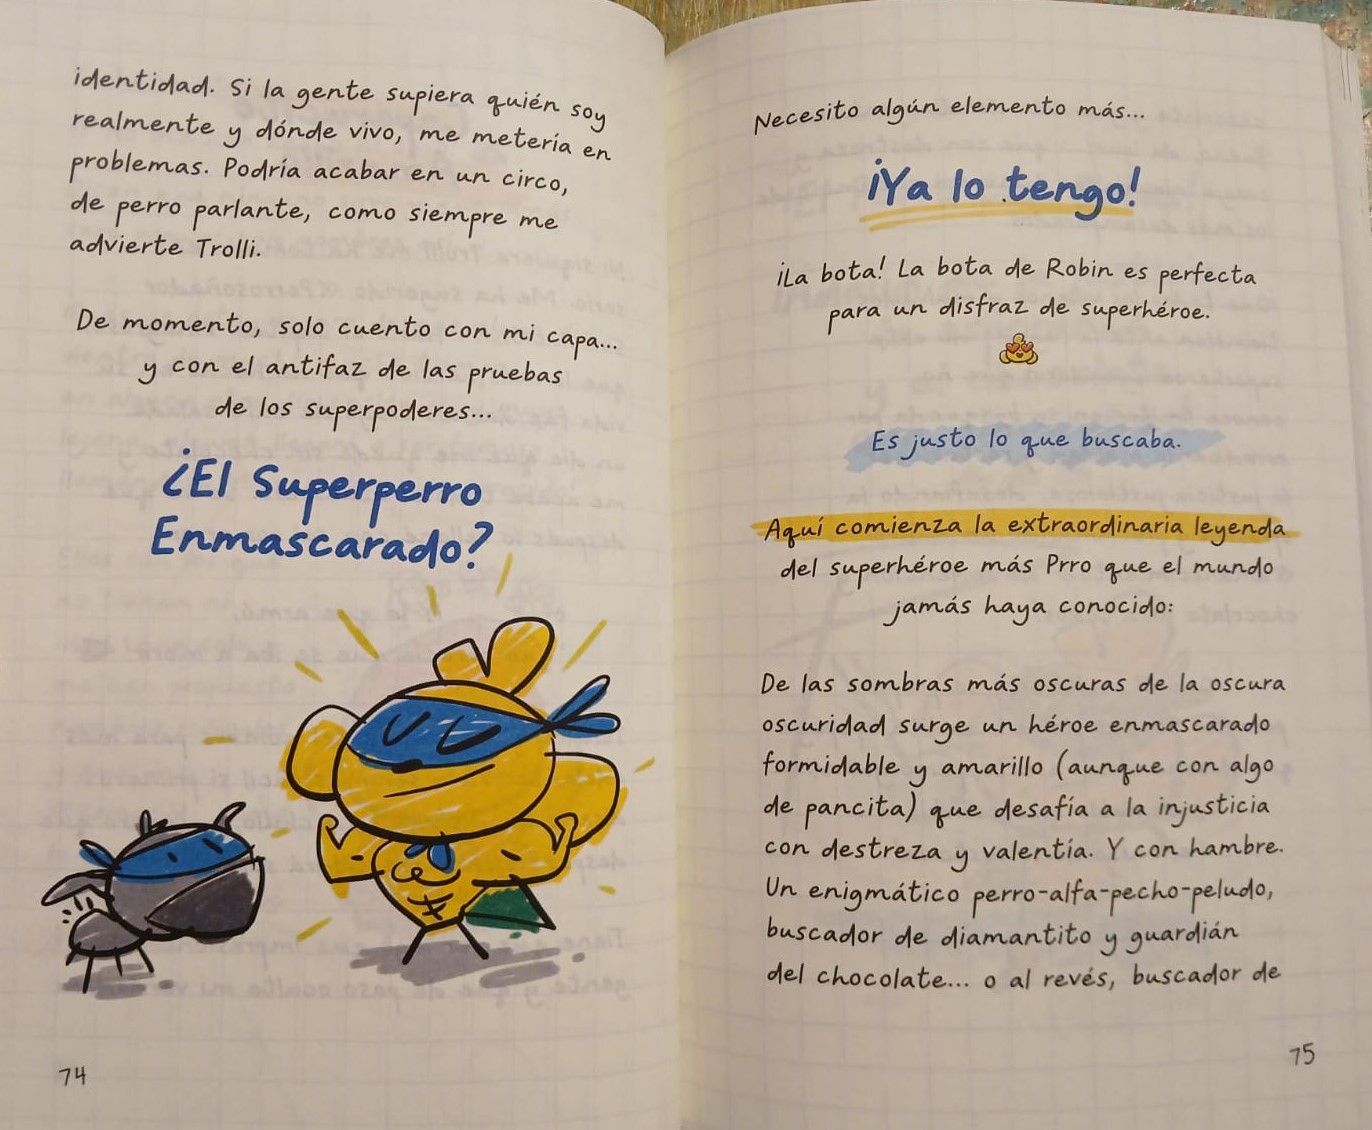 identidad. Si la gente supiera quién soy
realmente y dónde vivo, me metería en
problemas. Podría acabar en un circo,
de perro parlante, como siempre me
advierte Trolli.
De momento, solo cuento con mi capa...
y con el antifaz de las pruebas
de los superpoderes...
¿El Superperro
Enmascarado?
74
Necesito algún elemento más...
¡Ya lo tengo!
¡La bota! La bota de Robin es perfecta
para un disfraz de superhéroe.
Es justo lo que buscaba.
Aquí comienza la extraordinaria leyenda
del superhéroe más Prro que el mundo
jamás haya conocido:
De las sombras más oscuras de la oscura
oscuridad surge un héroe enmascarado
formidable y amarillo (aunque con algo
de pancita) que desafía a la injusticia
con destreza y valentía. Y con hambre.
Un enigmático perro-alfa-pecho-peludo,
buscador de diamantito y guardián
del chocolate... o al revés, buscador de
75